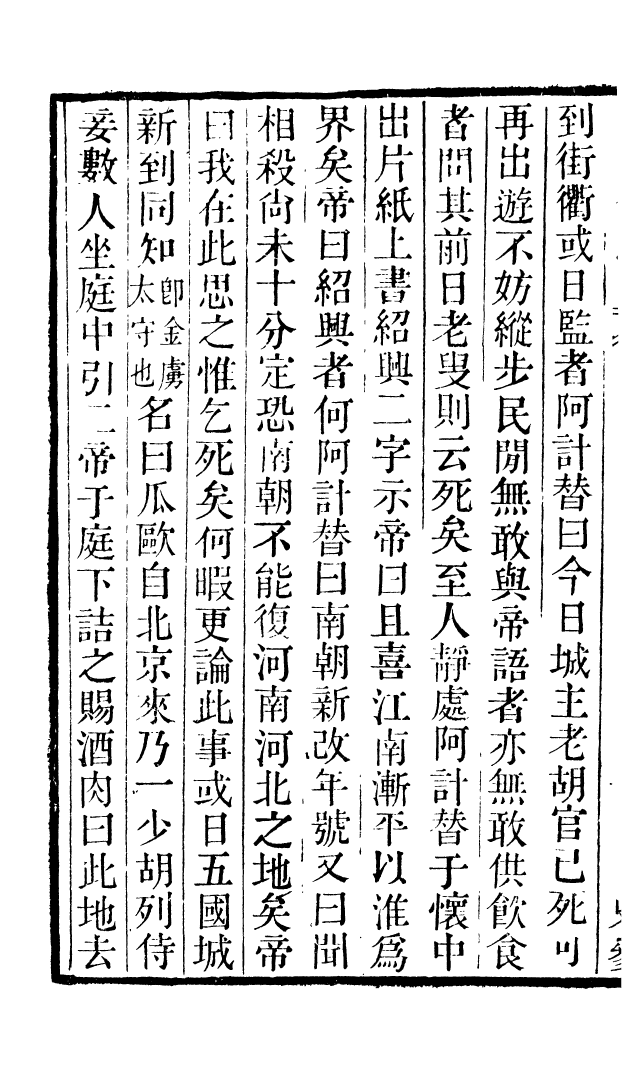 到街衢或日監者阿計替曰今日城主老胡官已死可
再出遊不妨縱步民閒無敢與帝語者亦無敢供飮食
者問其前日老叟則云死矣至人靜處阿計替于懷中
出片紙上書紹興二字示帝曰且喜江南漸平以淮爲
界矣帝曰紹興者何阿計替曰南朝新改年號又曰聞
相殺尙未十分定恐南朝不能復河南河北之地矣帝
曰我在此思之惟乞死矣何暇更論此事或日五國城
新到同知卽金虜太守也名曰瓜歐自北京來乃一少胡列侍
妾數人坐庭中引二帝于庭下詰之賜酒肉曰此地去